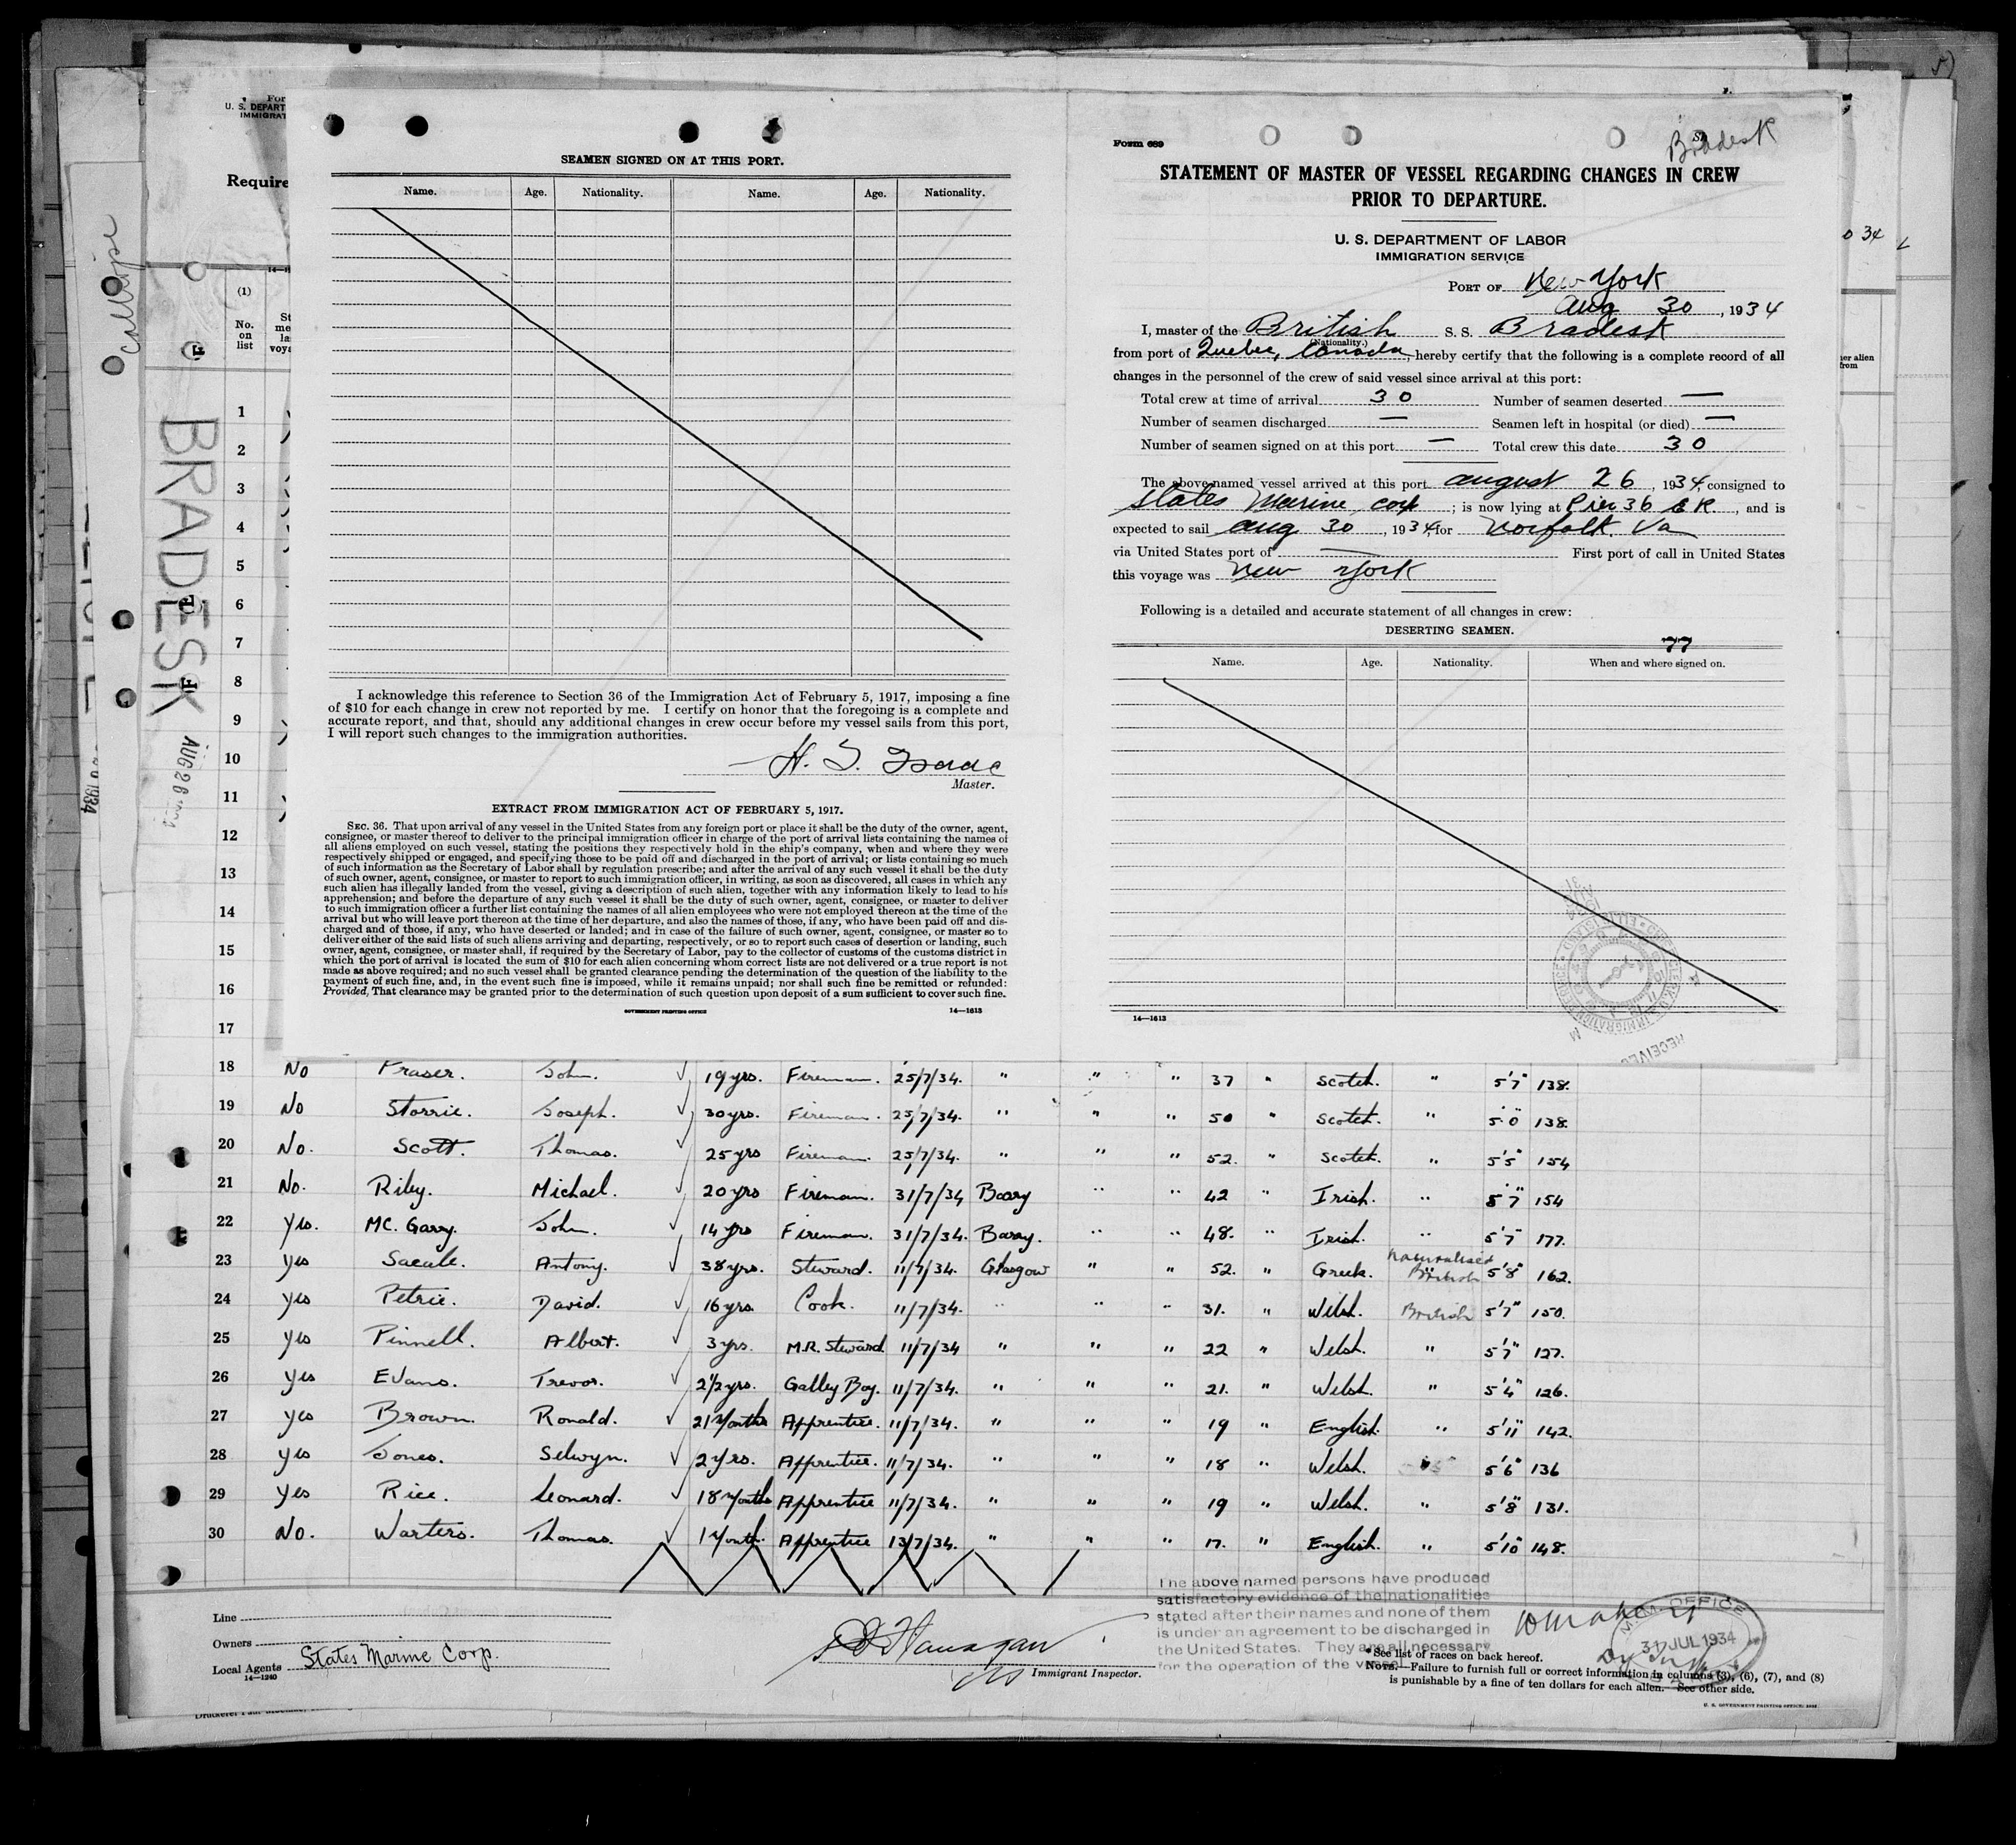 Form 689
Bradesk
STATEMENT OF MASTER OF VESSEL REGARDING CHANGES IN CREW
PRIOR TO DEPARTURE.
U. S. DEPARTMENT OF LABOR
IMMIGRATION SERVICE
PORT OF New York
Aug 30, 1934
I, master of the British S. S. Bradesk
(Nationality.)
from port of Quebec, Canada, hereby certify that the following is a complete record of all
changes in the personnel of the crew of said vessel since arrival at this port:
Total crew at time of arrival 30 Number of seamen deserted —
Number of seamen discharged — Seamen left in hospital (or died) —
Number of seamen signed on at this port — Total crew this date 30
The above-named vessel arrived at this port august 26, 1934, consigned to
States Marine Corp; is now lying at Pier 36 E R., and is
expected to sail aug 30, 1934, for Norfolk. Va
via United States port of — First port of call in United States
this voyage was New York
Following is a detailed and accurate statement of all changes in crew:
DESERTING SEAMEN.
77
Name. Age. Nationality. When and where signed on.
14—1613
SEAMEN SIGNED ON AT THIS PORT.
Name. Age. Nationality. Name. Age. Nationality.
I acknowledge this reference to Section 36 of the Immigration Act of February 5, 1917, imposing a fine
of $10 for each change in crew not reported by me. I certify on honor that the foregoing is a complete and
accurate report, and that, should any additional changes in crew occur before my vessel sails from this port,
I will report such changes to the immigration authorities.
Master.
EXTRACT FROM IMMIGRATION ACT OF FEBRUARY 5, 1917.
SEC. 36. That upon arrival of any vessel in the United States from any foreign port or place it shall be the duty of the owner, agent,
consignee, or master thereof to deliver to the principal immigration officer in charge of the port of arrival lists containing the names of
all aliens employed on such vessel, stating the positions they respectively hold in the ship's company, when and where they were
respectively shipped or engaged, and specifying those to be paid off and discharged in the port of arrival; or lists containing so much
of such information as the Secretary of Labor shall by regulation prescribe; and after the arrival of any such vessel it shall be the duty
of such owner, agent, consignee, or master to report to such immigration officer, in writing, as soon as discovered, all cases in which any
such alien has illegally landed from the vessel, giving a description of such alien, together with any information likely to lead to his
apprehension; and before the departure of any such vessel it shall be the duty of such owner, agent, consignee, or master to deliver
to such immigration officer a further list containing the names of all alien employees who were not employed thereon at the time of the
arrival but who will leave port thereon at the time of her departure, and also the names of those, if any, who have been paid off and dis-
charged and of those, if any, who have deserted or landed; and in case of the failure of such owner, agent, consignee, or master so to
deliver either of the said lists of such aliens arriving and departing, respectively, or so to report such cases of desertion or landing, such
owner, agent, consignee, or master shall, if required by the Secretary of Labor, pay to the collector of customs of the customs district in
which the port of arrival is located the sum of $10 for each alien concerning whom correct lists are not delivered or a true report is not
made as above required; and no such vessel shall be granted clearance pending the determination of the question of the liability to the
payment of such fine, and, in the event such fine is imposed, while it remains unpaid; nor shall such fine be remitted or refunded:
Provided, That clearance may be granted prior to the determination of such question upon deposit of a sum sufficient to cover such fine.
GOVERNMENT PRINTING OFFICE 14—1613
BRADESK
AUG 26
Calliope
1934
U. S. DEPART
IMMIGRAT
Require
(1)
No.
on
list
1
2
3
4
5
6
7
8
9
10
11
12
13
14
15
16
17
18 No Fraser. John. 19 yrs. Fireman. 25/7/34. " " " 37 " Scotch. " 5'7" 138.
19 No Storrie. Joseph. 30 yrs. Fireman. 25/7/34. " " " 50 " Scotch. " 5'0" 138.
20 No. Scott. Thomas. 25 yrs Fireman. 25/7/34. " " " 52. " Scotch. " 5'5" 154
21 No. Riley. Michael. 20 yrs Fireman. 31/7/34 Barry " " 42 " Irish. " 5'7" 154
22 Yes. Mc. Garry. John. 14 yrs Fireman. 31/7/34. Barry. " " 48. " Irish. " 5'7" 177.
23 Yes Antony. 38 yrs. Steward. 11/7/34. Glasgow " " 52. " Greek. Naturalised British 5'8" 162.
24 Yes Petrie. David. 16 yrs. Cook. 11/7/34. " " " 31. " Welsh. British 5'7" 150.
25 Yes Pinnell. Albert. 3 yrs. M.R. Steward 11/7/34 " " " 22 " Welsh. " 5'7" 127.
26 Yes Evans. Trevor. 2½ yrs. Galley Boy. 11/7/34. " " " 21. " Welsh. " 5'4" 126.
27 Yes Brown. Ronald. 21 Months Apprentice. 11/7/34. " " " 19 " English. " 5'11" 142.
28 Yes Jones. Selwyn. 2 yrs. Apprentice. 11/7/34. " " " 18 " Welsh. " 5'6" 136
29 Yes Rice. Leonard. 18 Months Apprentice 11/7/34. " " " 19 " Welsh. " 5'8" 131.
30 No. Warters. Thomas. 1 Month. Apprentice 13/7/34. " " " 17. " English. " 5'10" 148.
The above named persons have produced
satisfactory evidence of the nationalities
stated after their names and none of them
is under an agreement to be discharged in
the United States. They are all necessary
for the operation of the vessel
Line
Owners
Local Agents States Marine Corp.
14—1240
Immigrant Inspector.
OFFICE
31 JUL 1934
* See list of races on back hereof.
NOTE.—Failure to furnish full or correct information in columns (3), (6), (7), and (8)
is punishable by a fine of ten dollars for each alien. See other side.
U. S. GOVERNMENT PRINTING OFFICE